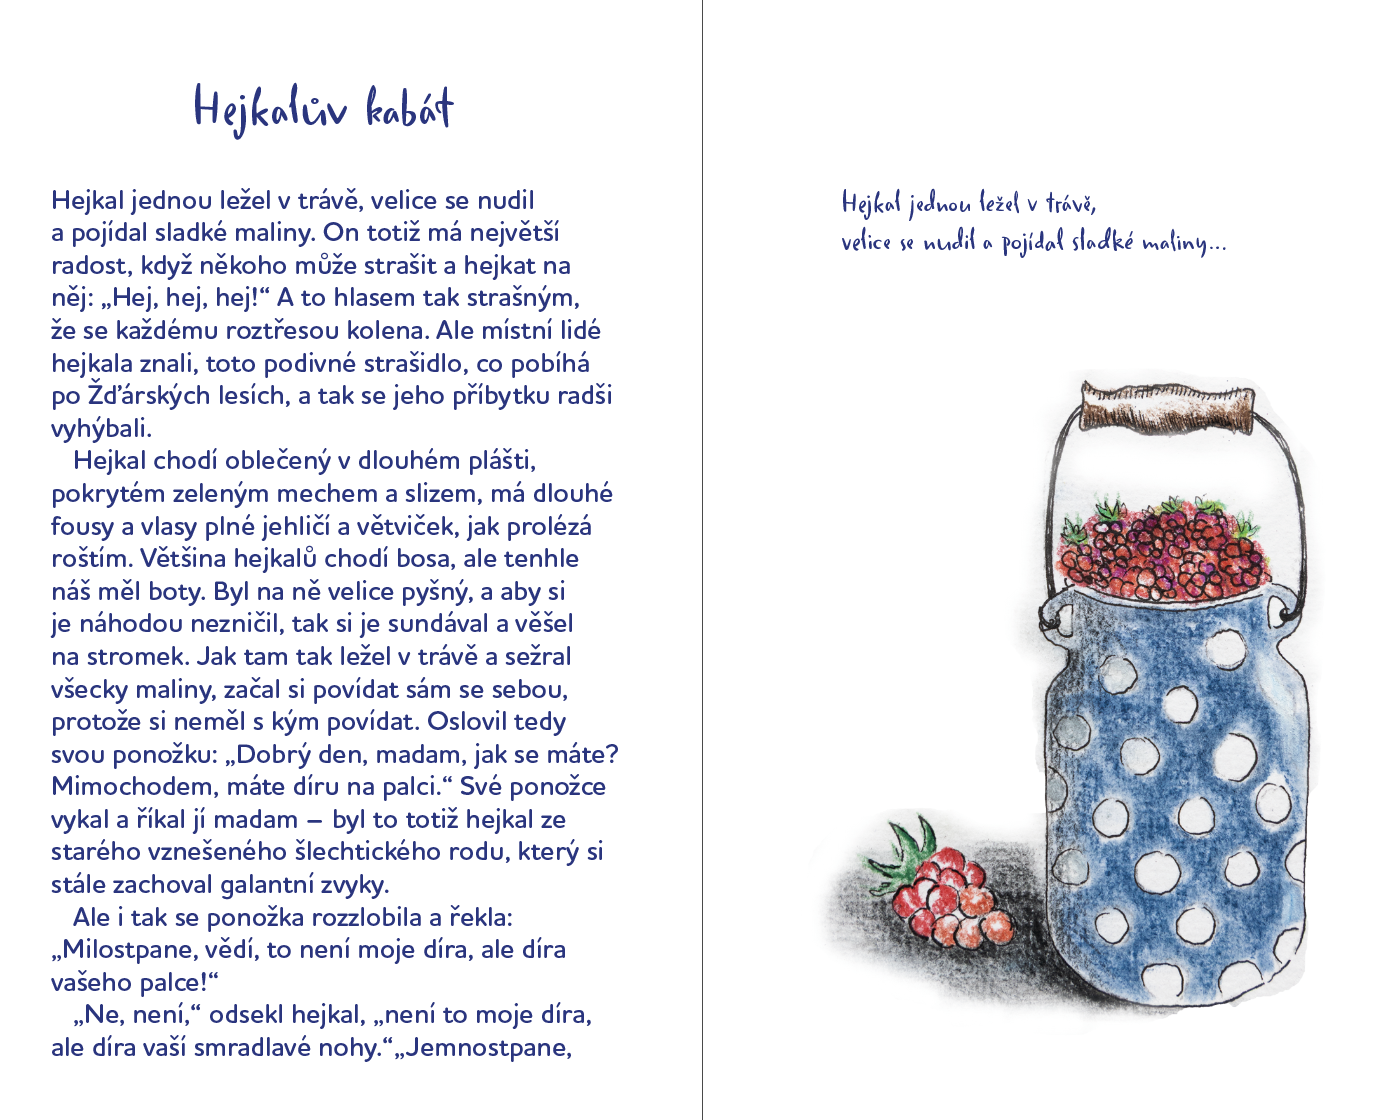 Hejkalův kabát
Hejkal jednou ležel v trávě, velice se nudil
a pojídal sladké maliny. On totiž má největší
radost, když někoho může strašit a hejkat na
něj: „Hej, hej, hej!“ A to hlasem tak strašným,
že se každému roztřesou kolena. Ale místní lidé
hejkala znali, toto podivné strašidlo, co pobíhá
po Žďárských lesích, a tak se jeho příbytku radši
vyhýbali.
Hejkal chodí oblečený v dlouhém plášti,
pokrytém zeleným mechem a slizem, má dlouhé
fousy a vlasy plné jehličí a větviček, jak prolézá
roštím. Většina hejkalů chodí bosa, ale tenhle
náš měl boty. Byl na ně velice pyšný, a aby si
je náhodou nezničil, tak si je sundával a věšel
na stromek. Jak tam tak ležel v trávě a sežral
všecky maliny, začal si povídat sám se sebou,
protože si neměl s kým povídat. Oslovil tedy
svou ponožku: „Dobrý den, madam, jak se máte?
Mimochodem, máte díru na palci.“ Své ponožce
vykal a říkal jí madam – byl to totiž hejkal ze
starého vznešeného šlechtického rodu, který si
stále zachoval galantní zvyky.
Ale i tak se ponožka rozzlobila a řekla:
„Milostpane, vědí, to není moje díra, ale díra
vašeho palce!“
„Ne, není,“ odsekl hejkal, „není to moje díra,
ale díra vaší smradlavé nohy.“„Jemnostpane,
Hejkal jednou ležel v trávě,
velice se nudil a pojídal sladké maliny...